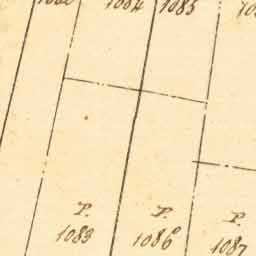 1084 1085
P. P. P.
1083 1086 1087